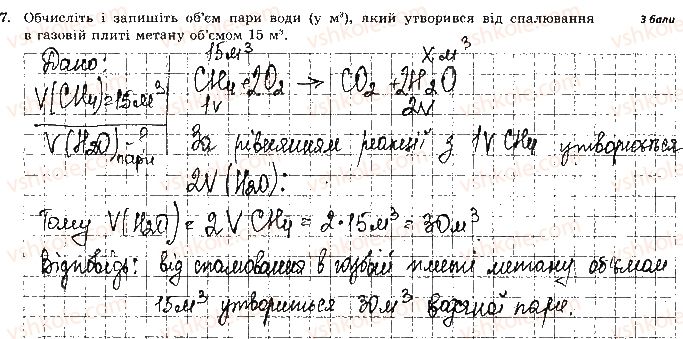 7. Обчисліть і запишіть об'єм пари води (у м³), який утворився від спалювання 3 бали
в газовій плиті метану об'ємом 15 м³.
Дано: 15м³ Xм³
V(CH4)=15м³ CH4+2O2 → CO2+2H2O
1V 2V
V(H2O)-? пари За рівнянням реакції з 1V CH4 утворюється
2V(H2O):
Тому V(H2O)=2V CH4=2·15м³=30м³
Відповідь: від спалювання в газовій плиті метану об'ємом
15м³ утвориться 30м³ водяної пари.